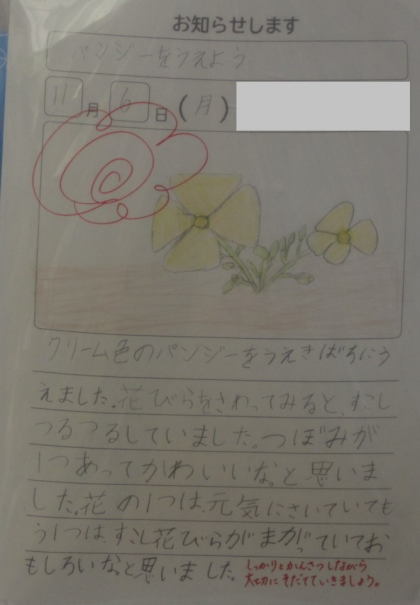 お知らせします
パンジーをうえよう
11月6日(月)
クリーム色のパンジーをうえきばちにう
えました。花びらをさわってみると、すこし
つるつるしていました。つぼみが
1つあってかわいいなと思いま
した。花の1つは、元気にさいていても
う1つは、すこし花びらがまがっていてお
もしろいなと思いました。
しっかりとかんさつしながら
大切にそだてていきましょう。